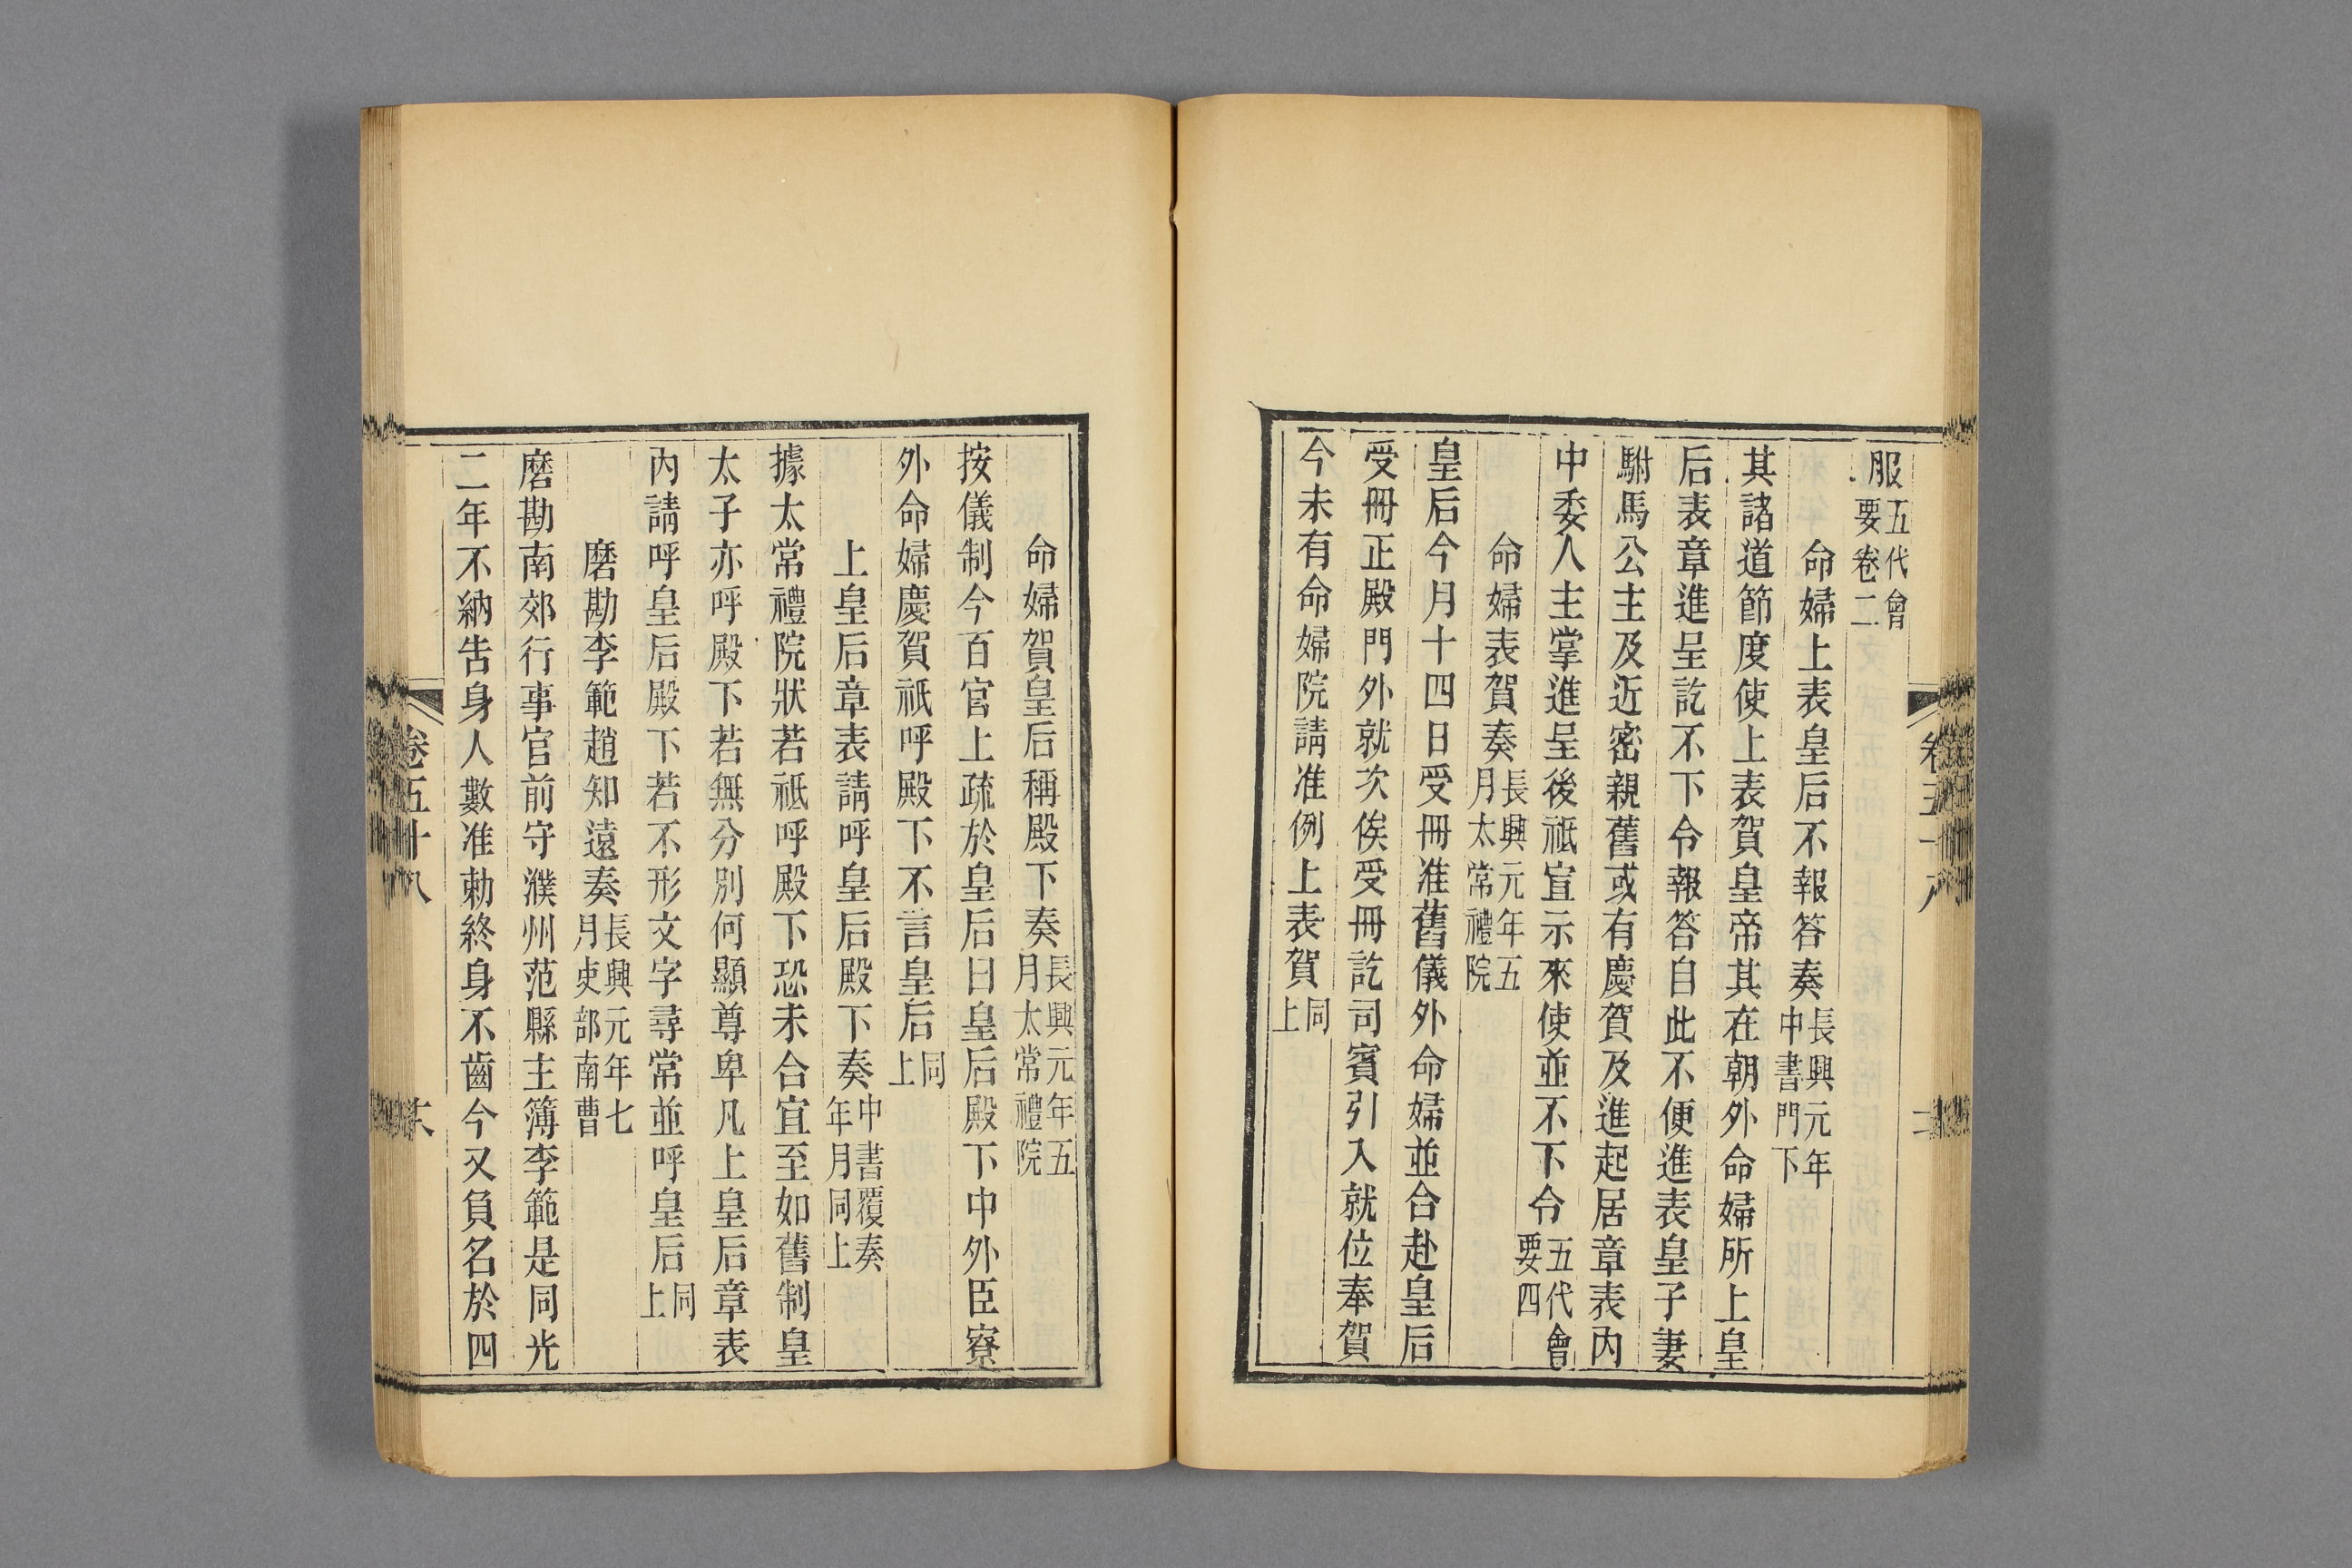 服五代會要卷二
命婦上表皇后不報答奏長興元年中書門下
其諸道節度使上表賀皇帝其在朝外命婦所上皇
后表章進呈訖不下令報答自此不便進表皇子妻
駙馬公主及近密親舊或有慶賀及進起居章表內
中委人主掌進呈後祗宣示來使並不下令五代會要四
命婦表賀奏長興元年五月太常禮院
皇后今月十四日受冊准舊儀外命婦並合赴皇后
受冊正殿門外就次俟受冊訖司賓引入就位奉賀
今未有命婦院請准例上表賀同上
命婦賀皇后稱殿下奏長興元年五月太常禮院
按儀制今百官上疏於皇后曰皇后殿下中外臣寮
外命婦慶賀祇呼殿下不言皇后同上
上皇后章表請呼皇后殿下奏中書覆奏年月同上
據太常禮院狀若祗呼殿下恐未合宜至如舊制皇
太子亦呼殿下若無分別何顯尊卑凡上皇后章表
內請呼皇后殿下若不形文字尋常並呼皇后同上
磨勘李範趙知遠奏長興元年七月吏部南曹
磨勘南郊行事官前守濮州范縣主簿李範是同光
二年不納告身人數准勅終身不齒今又負名於四
卷五十八